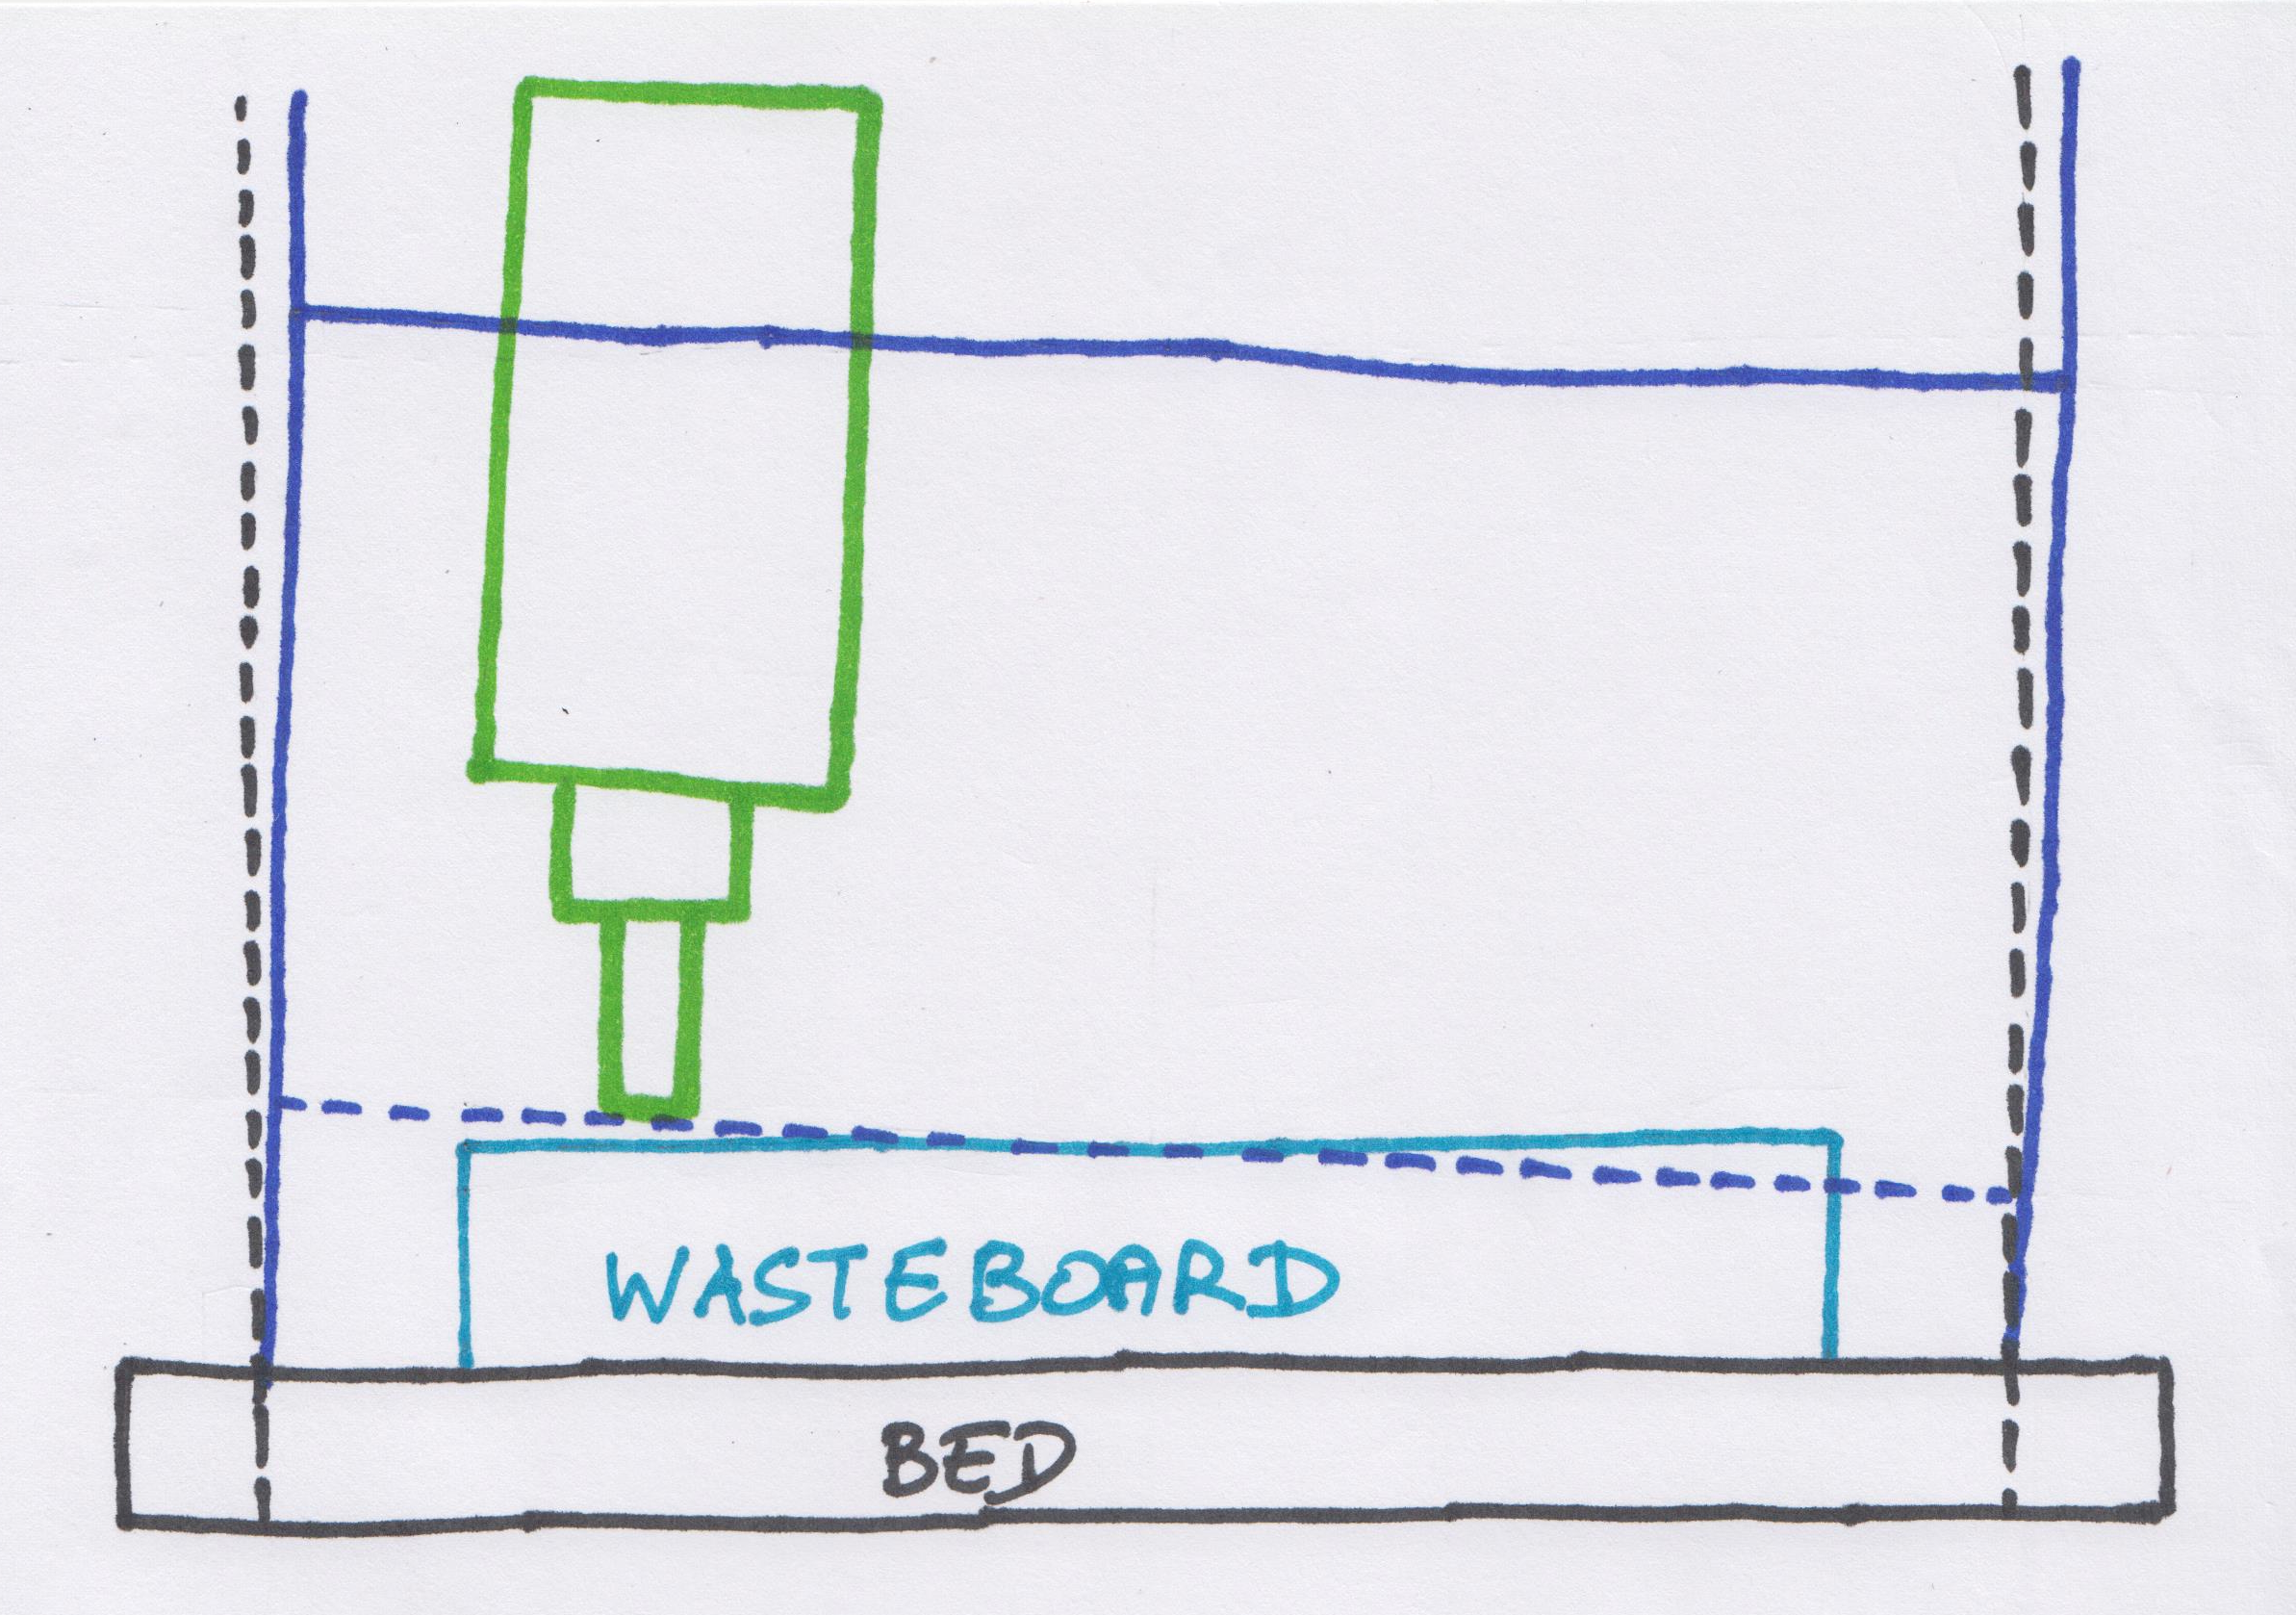 WASTEBOARD
BED